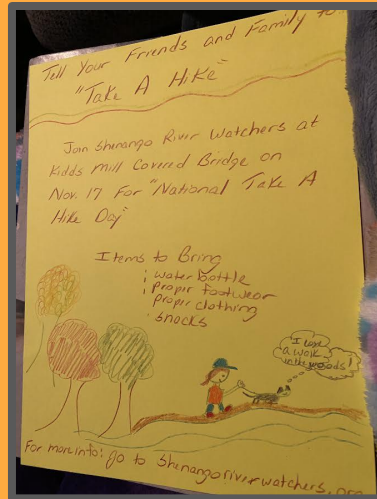 Tell Your Friends and Family to
"Take A Hike"
Join Shenango River Watchers at
Kidds Mill Covered Bridge on
Nov. 17 For "National Take A
Hike Day"
Items to Bring
water bottle
proper footwear
proper clothing
snacks
I love
a walk
in the woods!
For more info: go to Shenangoriverwatchers.org